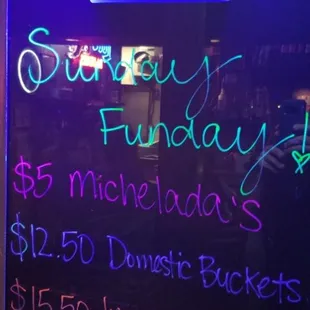 Sunday
Funday!
$5 Michelada's
$12.50 Domestic Buckets
$15.50